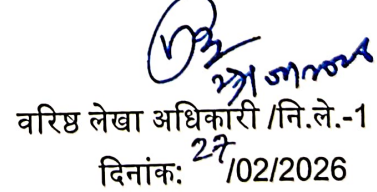 वरिष्ठ लेखा अधिकारी /नि.ले.-1
दिनांक: 27/02/2026